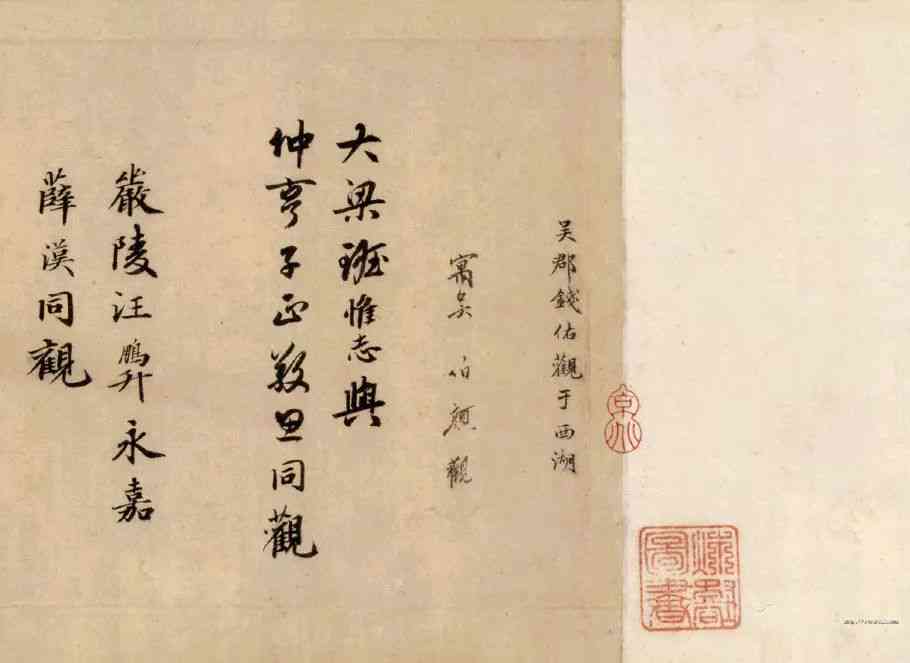 吳郡錢佑觀于西湖
寓吳伯顔觀
大梁班惟志與
仲亨子正同觀
嚴陵汪鵬升永嘉
薛漢同觀